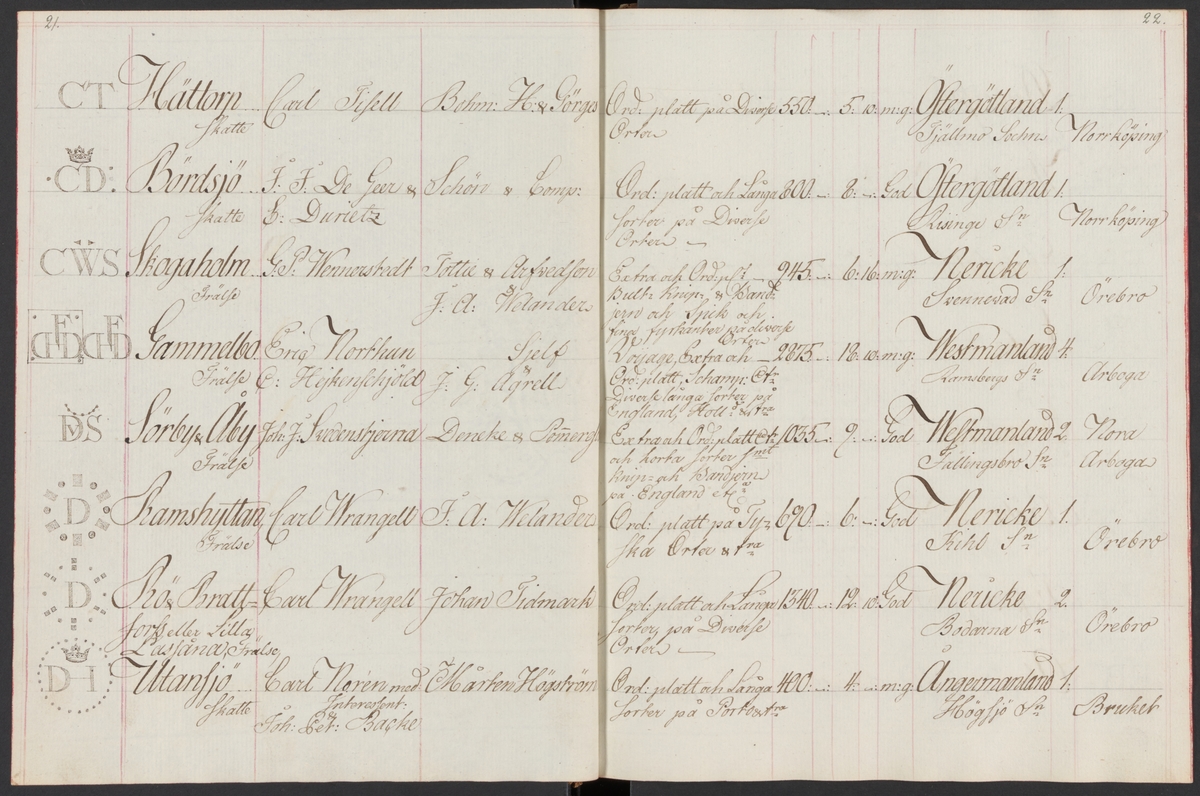 21.
CT Hättorp Carl Tisell Bohm: H: & Görges
Skatte
CD Bördsjö J. F. De Geer & Schön & Comp:
Skatte E: Durietz
CWS Skogaholm G. P. Wernerstedt Tottie & Arfvedson
Frälse J: A: Welander
Gammelbo Eric Northun Sjelf
Frälse C: Hejkenschjöld J: G: Agrell
DS Sörby & Åby Joh: J: Svedenstjerna Deneke &
Frälse
D Ramshyttan Carl Wrangell J: A: Welander
Frälse
D Rö & Bratt= Carl Wrangell Johan Tidmark
fors eller Lilla
Lassåna, Frälse
D-I Utansjö Carl Noren med Mårten Högström
Skatte Interessent:
Joh: Pet: Backe
22.
Ord: platt på Diverse 550. — : 5: 10: m: g: Östergötland 1:
Orter Tjällmo Sochn Norrköping
Ord: platt och Långa 800. — : 8: — : God Östergötland 1:
Sorter på Diverse Risinge Sn Norrköping
Orter —
Extra och Ord: plt — 945. — : 6: 16: m: g: Nericke 1:
Bult= Knip= & Band= Svennevad Sn Örebro
jern och Spick och
fina fyrkanter på diverse
Orter
Voyage, Extra och — 2875 — : 18: 10: m: g: Westmanland 4:
Ord: platt, Schamp: Etr Ramsbergs Sn Arboga
Diverse långa sorter på
England, Holl: & fra
Extra och Ord: platt Et: 1035 — : 9: — : God Westmanland 2. Nora
och korta sorter smt Fällingsbro Sn Arboga
Knip= och Bandjern
på England etc
Ord: platt på Ty= 690. — : 6: — : God Nericke 1:
ska Orter & fra Kihl Sn Örebro
Ord: platt och Långa 1340. — : 12: 10: God Nericke 2.
Sorter, på Diverse Bodarna Sn Örebro
Orter —
Ord: platt och Långa 400: — : 4: — : m: g: Ångermanland 1:
Sorter på Porto & fra Högsjö Sn Bruket